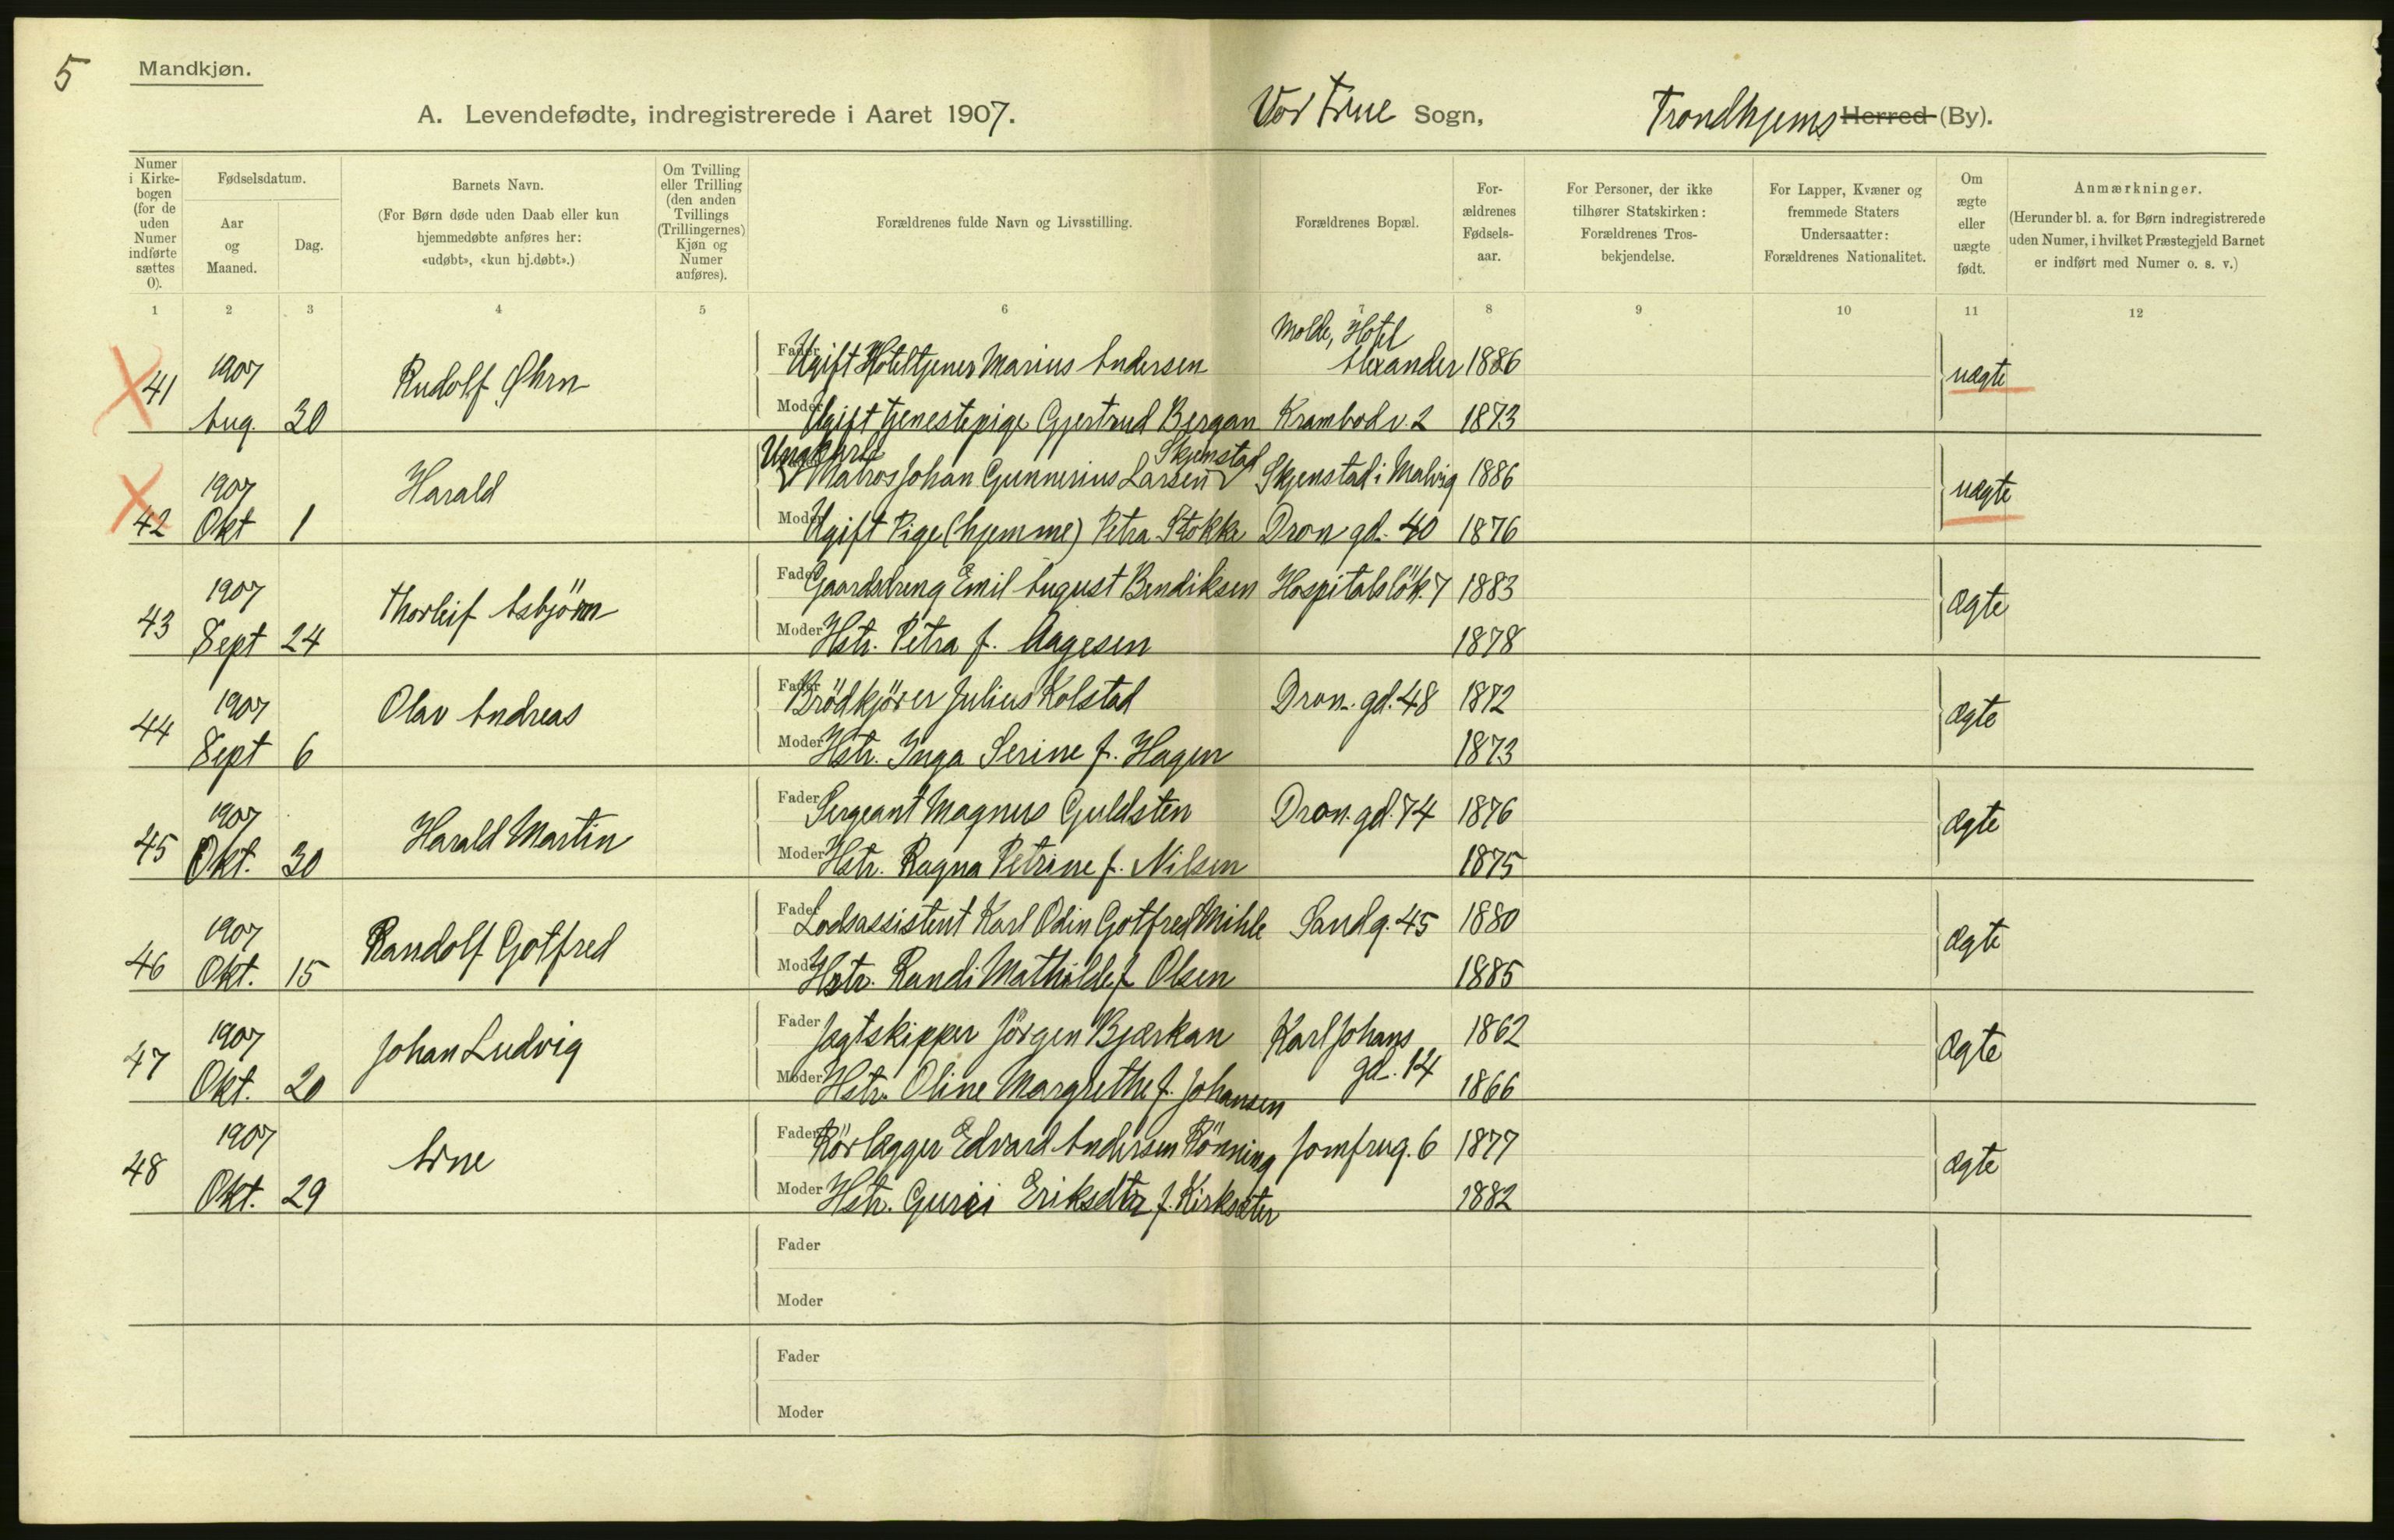 5
Mandkjøn.
A. Levendefødte, indregistrerede i Aaret 1907.
Vor Frue Sogn,
Trondhjems Herred (By).
Numer i Kirkebogen (for de uden Numer indførte sættes 0).
Fødselsdatum.
Aar og Maaned.
Dag.
Barnets Navn.
(For Børn døde uden Daab eller kun hjemmedøbte anføres her: «udøbt», «kun hj.døbt».)
Om Tvilling eller Trilling (den anden Tvillings (Trillingernes) Kjøn og Numer anføres).
Forældrenes fulde Navn og Livsstilling.
Forældrenes Bopæl.
Forældrenes Fødselsaar.
For Personer, der ikke tilhører Statskirken: Forældrenes Trosbekjendelse.
For Lapper, Kvæner og fremmede Staters Undersaatter: Forældrenes Nationalitet.
Om ægte eller uægte født.
Anmærkninger.
(Herunder bl. a. for Børn indregistrerede uden Numer, i hvilket Præstegjeld Barnet er indført med Numer o. s. v.)
1 2 3 4 5 6 7 8 9 10 11 12
41 1907 Aug. 30 Rudolf Øhrn
Fader Ugift Hoteltjener Marius Andersen Molde, Hotel Alexander 1886 uægte
Moder Ugift tjenestepige Gjertrud Bergan Krambodv. 2 1873
42 1907 Okt 1 Harald
Ungkarl Matros Johan Gunnerius Larsen Skjenstad Skjenstad i Malvig 1886 uægte
Moder Ugift Pige (hjemme) Petra Stokke Dron gd. 40 1876
43 1907 Sept 24 Thorleif Asbjörn
Fader Gaardsdreng Emil August Bendiksen Hospitalslök. 7 1883 ægte
Moder Hstr. Petra f. Aagesen 1878
44 1907 Sept 6 Olav Andreas
Fader Brödkjörer Julius Kolstad Dron. gd. 48 1872 ægte
Moder Hstr. Inga Serine f. Hagen 1873
45 1907 Okt. 30 Harald Martin
Fader Sergeant Magnus Guldsten Dron. gd. 74 1876 ægte
Moder Hstr. Ragna Petrine f. Nilsen 1875
46 1907 Okt. 15 Randolf Gotfred
Fader Lodsassistent Karl Odin Gotfred Mihle Sandg. 45 1880 ægte
Moder Hstr. Randi Mathilde f. Olsen 1885
47 1907 Okt. 20 Johan Ludvig
Fader Jagtskipper Jörgen Bjærkan Karl Johans gd. 14 1862 ægte
Moder Hstr. Oline Margrethe f. Johansen 1866
48 1907 Okt. 29 Arne
Fader Rörlægger Edvard Andersen Rönning Jomfrug. 6 1877 ægte
Moder Hstr. Guri Eriksdtr f. Kirksæter 1882
Fader
Moder
Fader
Moder